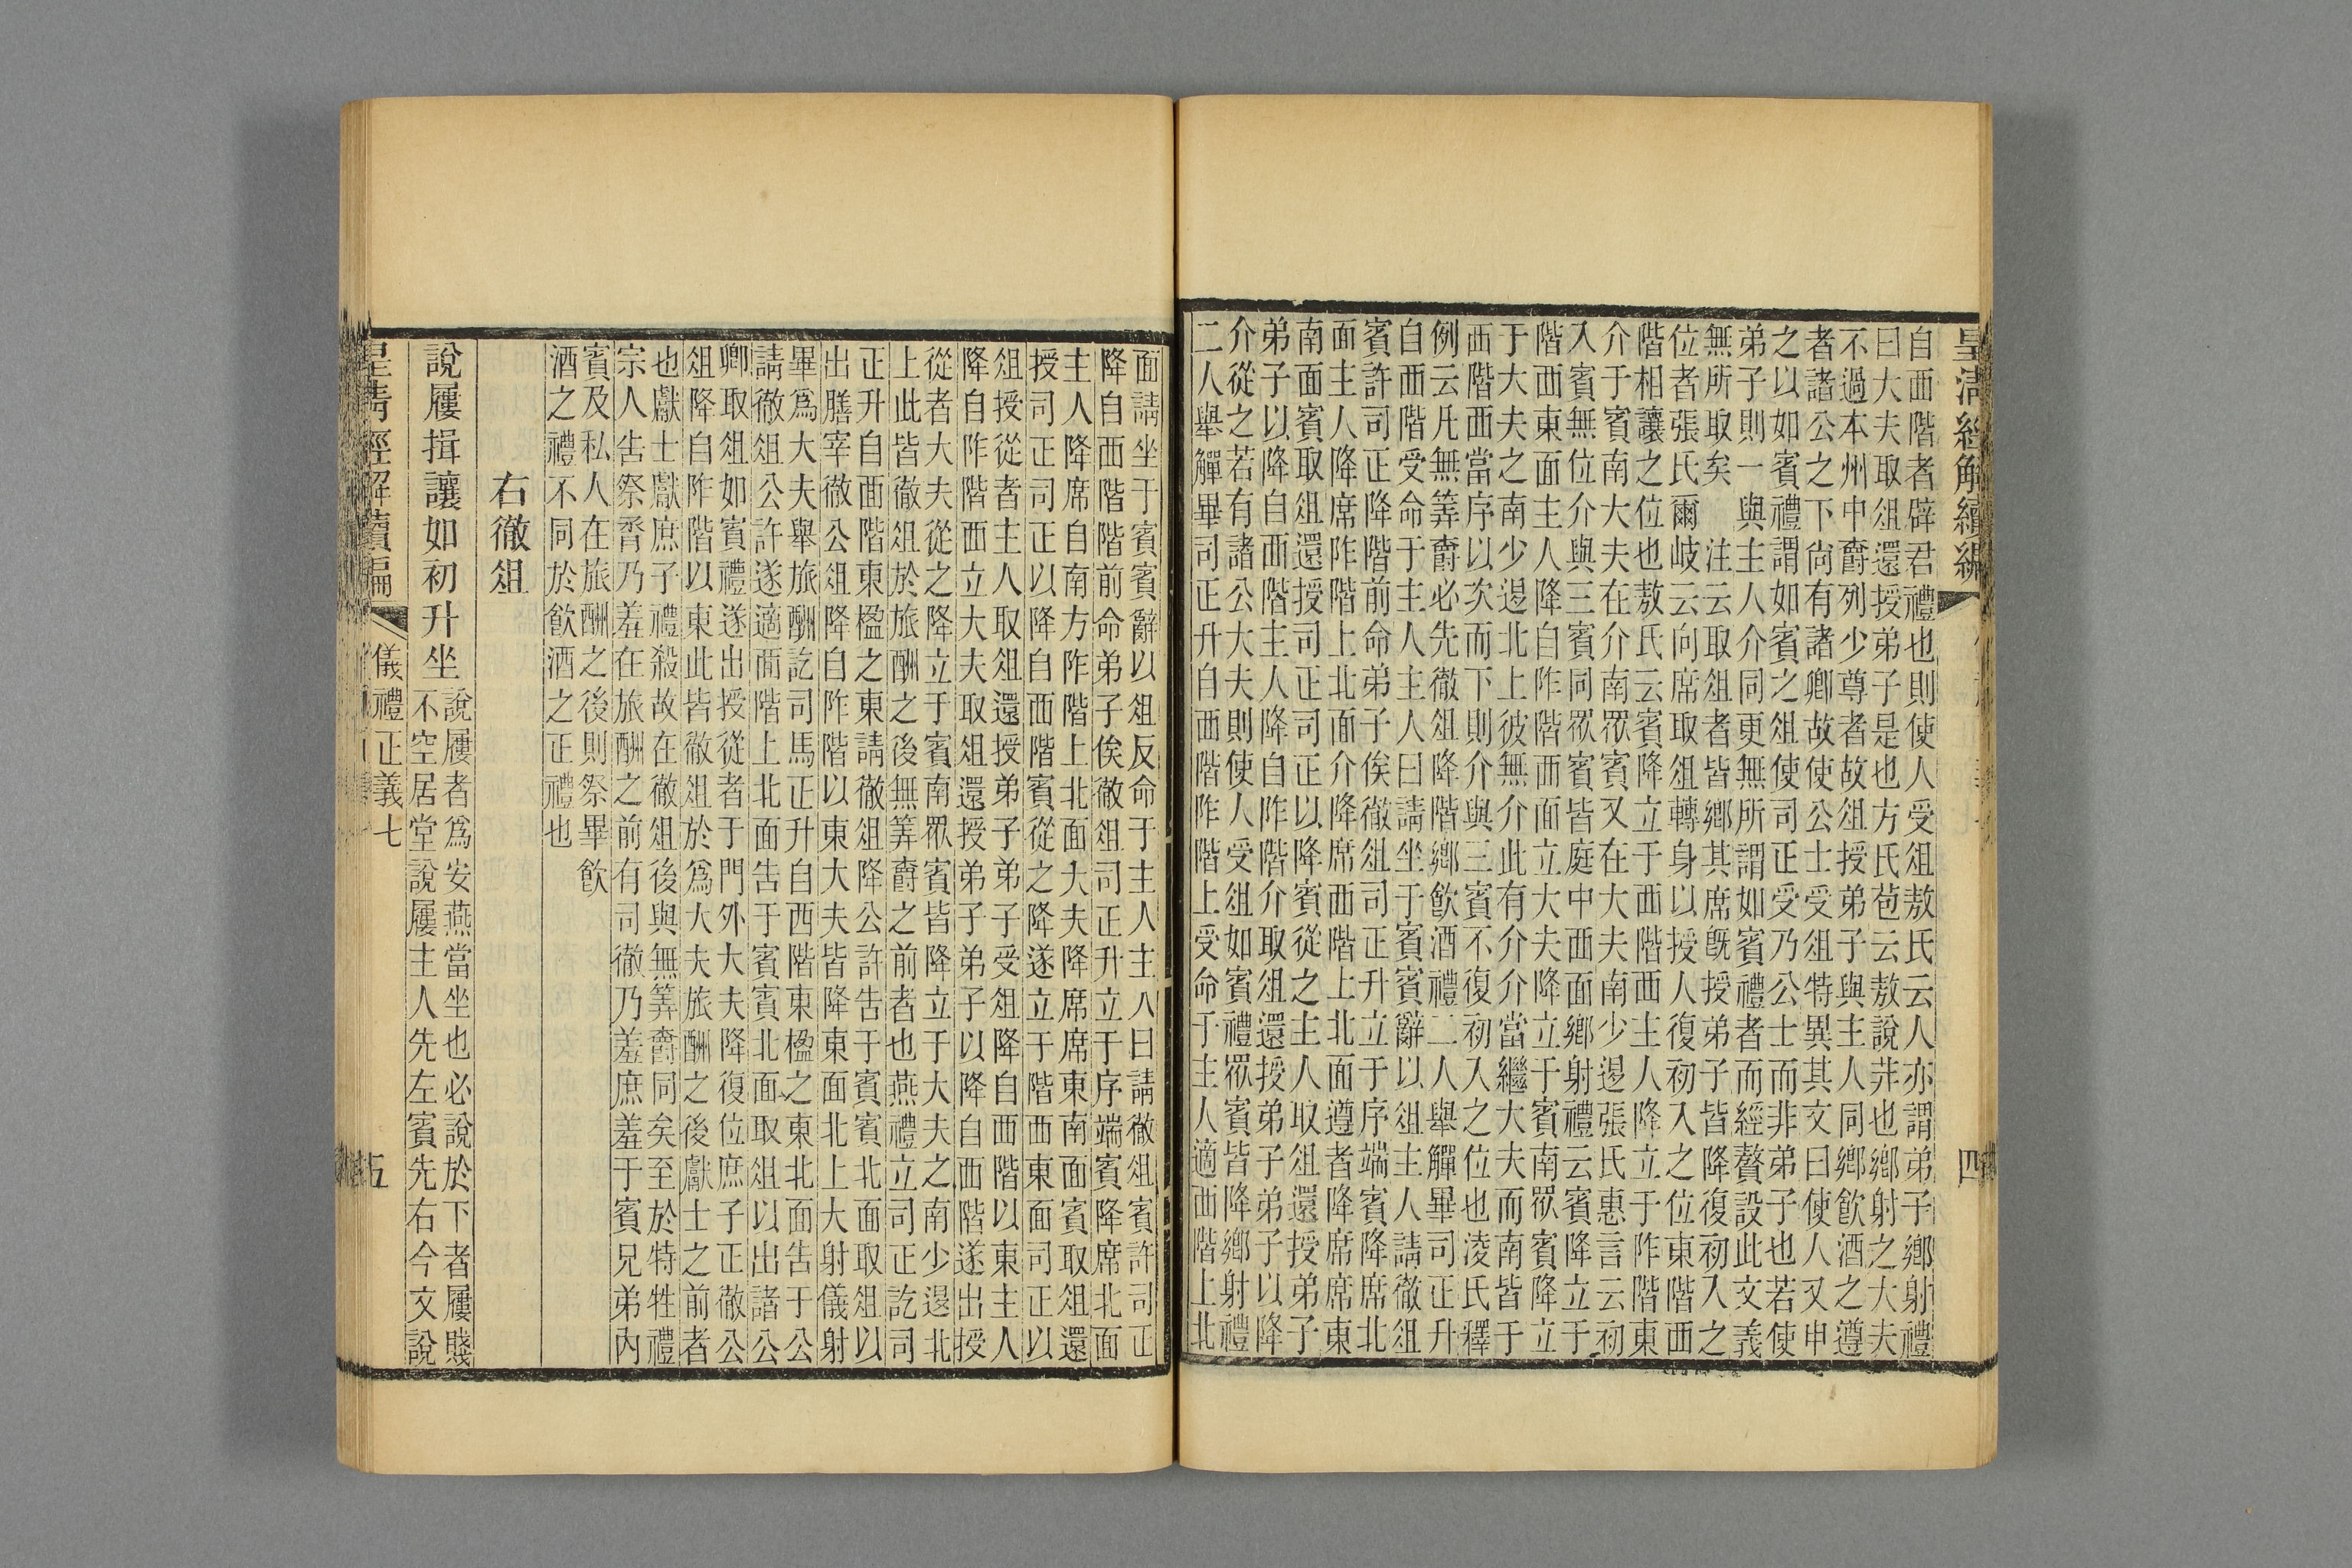 皇清經解續編
四
自西階者辟君禮也則使人受俎敖氏云人亦謂弟子鄉射禮
曰大夫取俎還授弟子是也方氏苞云敖說非也鄉射之大夫
不過本州中爵列少尊者故俎授弟子與主人同鄉飲酒之遵
者諸公之下尚有諸卿故使公士受俎特異其文曰使人又申
之以如賓禮謂如賓之俎使司正受乃公士而非弟子也若使
弟子則一與主人介同更無所謂如賓禮者而經贅設此文義
無所取矣　注云取俎者皆鄉其席旣授弟子皆降復初入之
位者張氏爾岐云向席取俎轉身以授人復初入之位東階西
階相讓之位也敖氏云賓降立于西階西主人降立于阼階東
介于賓南大夫在介南眾賓又在大夫南少退張氏惠言云初
入賓無位介與三賓同眾賓皆庭中西面鄉射禮云賓降立于
階西東面主人降自阼階西面立大夫降立于賓南眾賓降立
于大夫之南少退北上彼無介此有介介當繼大夫而南皆于
西階西當序以次而下則介與三賓不復初入之位也淩氏釋
例云凡無筭爵必先徹俎降階鄉飲酒禮二人舉觶畢司正升
自西階受命于主人主人曰請坐于賓賓辭以俎主人請徹俎
賓許司正降階前命弟子俟徹俎司正升立于序端賓降席北
面主人降席阼階上北面介降席西階上北面遵者降席席東
南面賓取俎還授司正司正以降賓從之主人取俎還授弟子
弟子以降自西階主人降自阼階介取俎還授弟子弟子以降
介從之若有諸公大夫則使人受俎如賓禮眾賓皆降鄉射禮
二人舉觶畢司正升自西階阼階上受命于主人適西階上北
面請坐于賓賓辭以俎反命于主人主人曰請徹俎賓許司正
降自西階階前命弟子俟徹俎司正升立于序端賓降席北面
主人降席自南方阼階上北面大夫降席席東南面賓取俎還
授司正司正以降自西階賓從之降遂立于階西東面司正以
俎授從者主人取俎還授弟子弟子受俎降自西階以東主人
降自阼階西面立大夫取俎還授弟子弟子以降自西階遂出授
從者大夫從之降立于賓南眾賓皆降立于大夫之南少退北
上此皆徹俎於旅酬之後無筭爵之前者也燕禮立司正訖司
正升自西階東楹之東請徹俎降公許告于賓賓北面取俎以
出膳宰徹公俎降自阼階以東大夫皆降東面北上大射儀射
畢爲大夫舉旅酬訖司馬正升自西階東楹之東北面告于公
請徹俎公許遂適西階上北面告于賓賓北面取俎以出諸公
卿取俎如賓禮遂出授從者于門外大夫降復位庶子正徹公
俎降自阼階以東此皆徹俎於爲大夫旅酬之後獻士之前者
也獻士獻庶子禮殺故在徹俎後與無筭爵同矣至於特牲禮
宗人告祭脀乃羞在旅酬之前有司徹乃羞庶羞于賓兄弟內
賓及私人在旅酬之後則祭畢飲
酒之禮不同於飲酒之正禮也
右徹俎
說屨揖讓如初升坐
說屨者爲安燕當坐也必說於下者屨賤
不空居堂說屨主人先左賓先右今文說
皇清經解續編
儀禮正義七
五